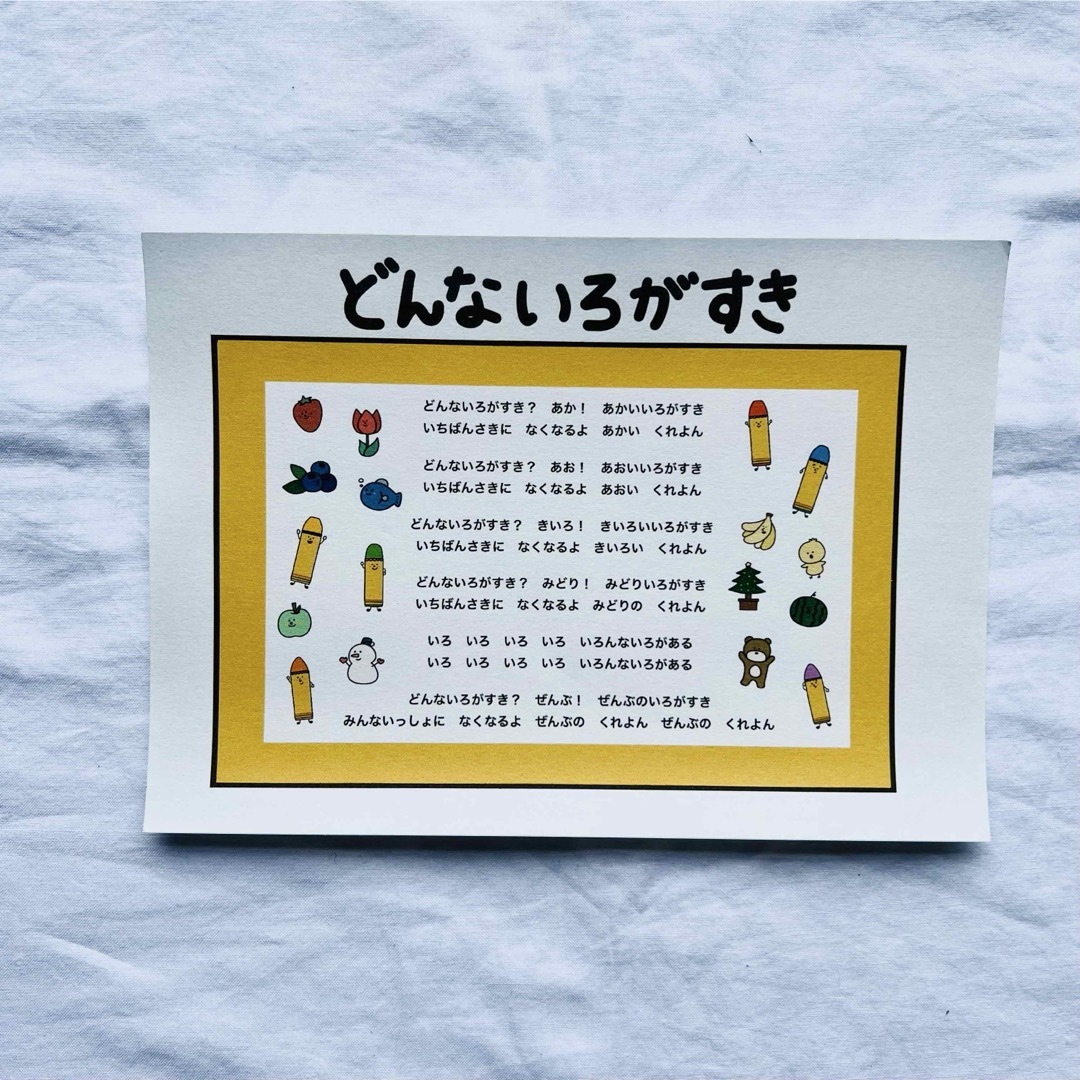 どんないろがすき
どんないろがすき？　あか！　あかいいろがすき
いちばんさきに　なくなるよ　あかい　くれよん
どんないろがすき？　あお！　あおいいろがすき
いちばんさきに　なくなるよ　あおい　くれよん
どんないろがすき？　きいろ！　きいろいいろがすき
いちばんさきに　なくなるよ　きいろい　くれよん
どんないろがすき？　みどり！　みどりいろがすき
いちばんさきに　なくなるよ　みどりの　くれよん
いろ　いろ　いろ　いろ　いろんないろがある
いろ　いろ　いろ　いろ　いろんないろがある
どんないろがすき？　ぜんぶ！　ぜんぶのいろがすき
みんないっしょに　なくなるよ　ぜんぶの　くれよん　ぜんぶの　くれよん